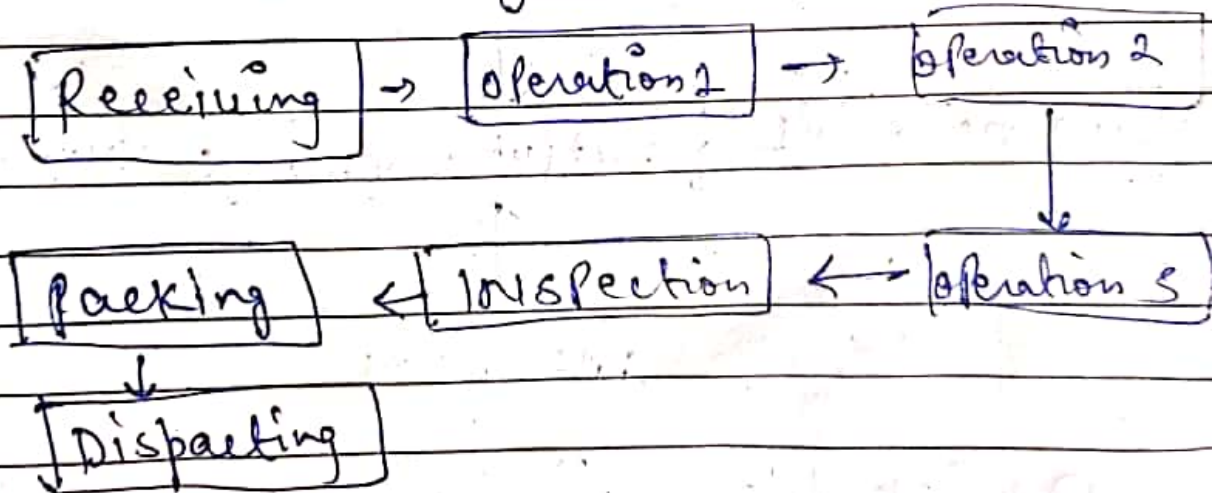 Receiving → Operation 1 → Operation 2
Packing ← Inspection ← Operation 3
Dispacting